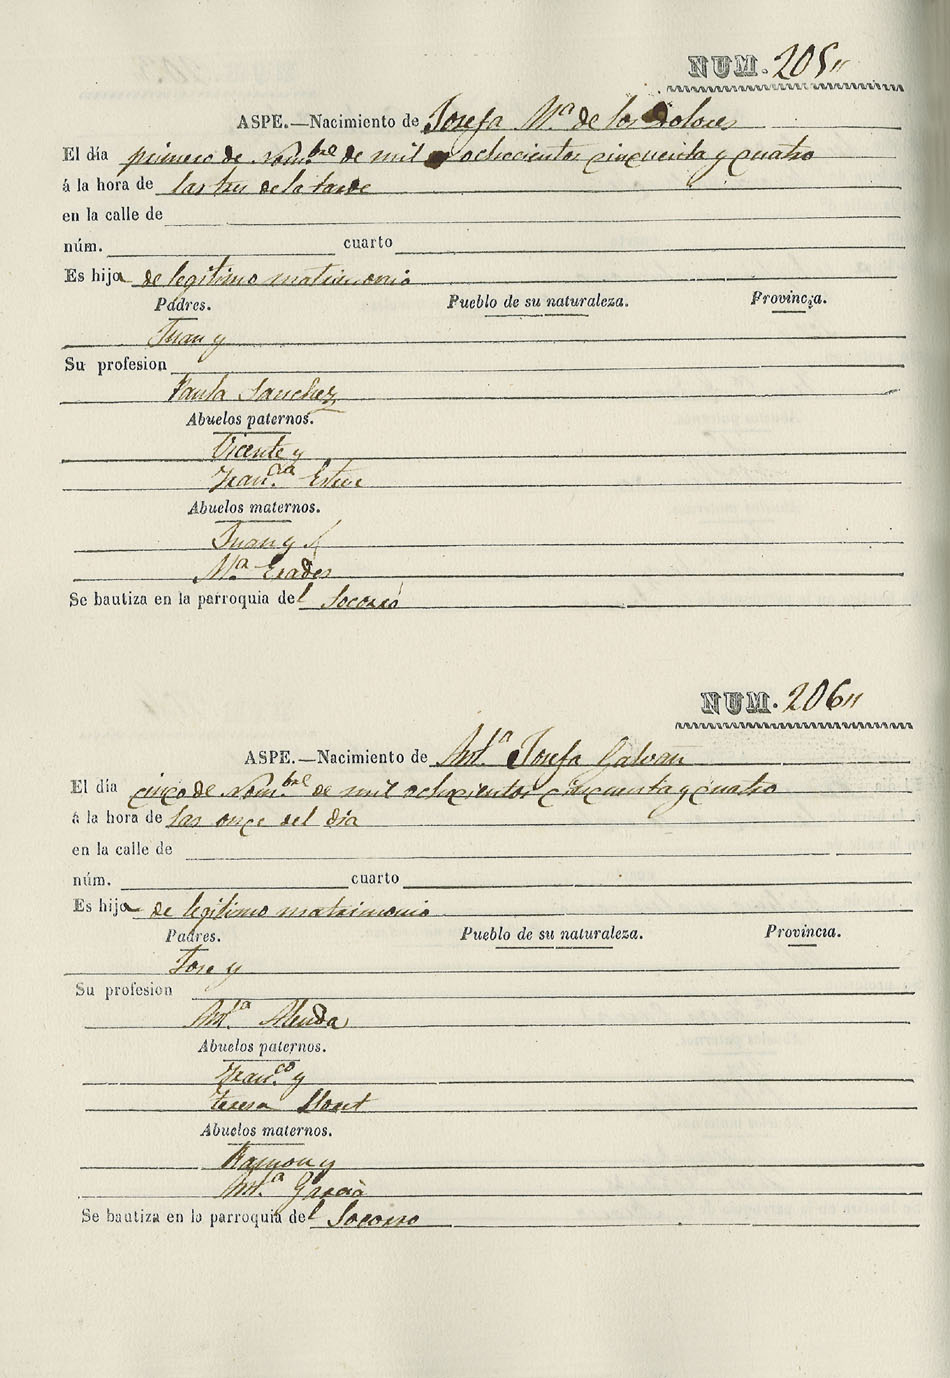 NUM. 205„
ASPE.—Nacimiento de Josefa M.ª de los Dolores
El día primero de Nom.bre de mil ochocientos cincuenta y cuatro
á la hora de las tres de la tarde
en la calle de
núm. cuarto
Es hija de legitimo matrimonio
Padres. Pueblo de su naturaleza. Provincia.
Juan y
Su profesion
Paula Sanchez
Abuelos paternos.
Vicente y
Fran.ca Esteve
Abuelos maternos.
Juan y
M.ª Erades
Se bautiza en la parroquia del Socorro
NUM. 206„
ASPE.—Nacimiento de M.ª Josefa Galvan
El día cinco de Nom.bre de mil ochocientos cincuenta y cuatro
á la hora de las once del dia
en la calle de
núm. cuarto
Es hija de legitimo matrimonio
Padres. Pueblo de su naturaleza. Provincia.
Jose y
Su profesion
M.ª
Abuelos paternos.
Fran.co y
Teresa
Abuelos maternos.
Ramon y
M.ª Garcia
Se bautiza en la parroquia del Socorro